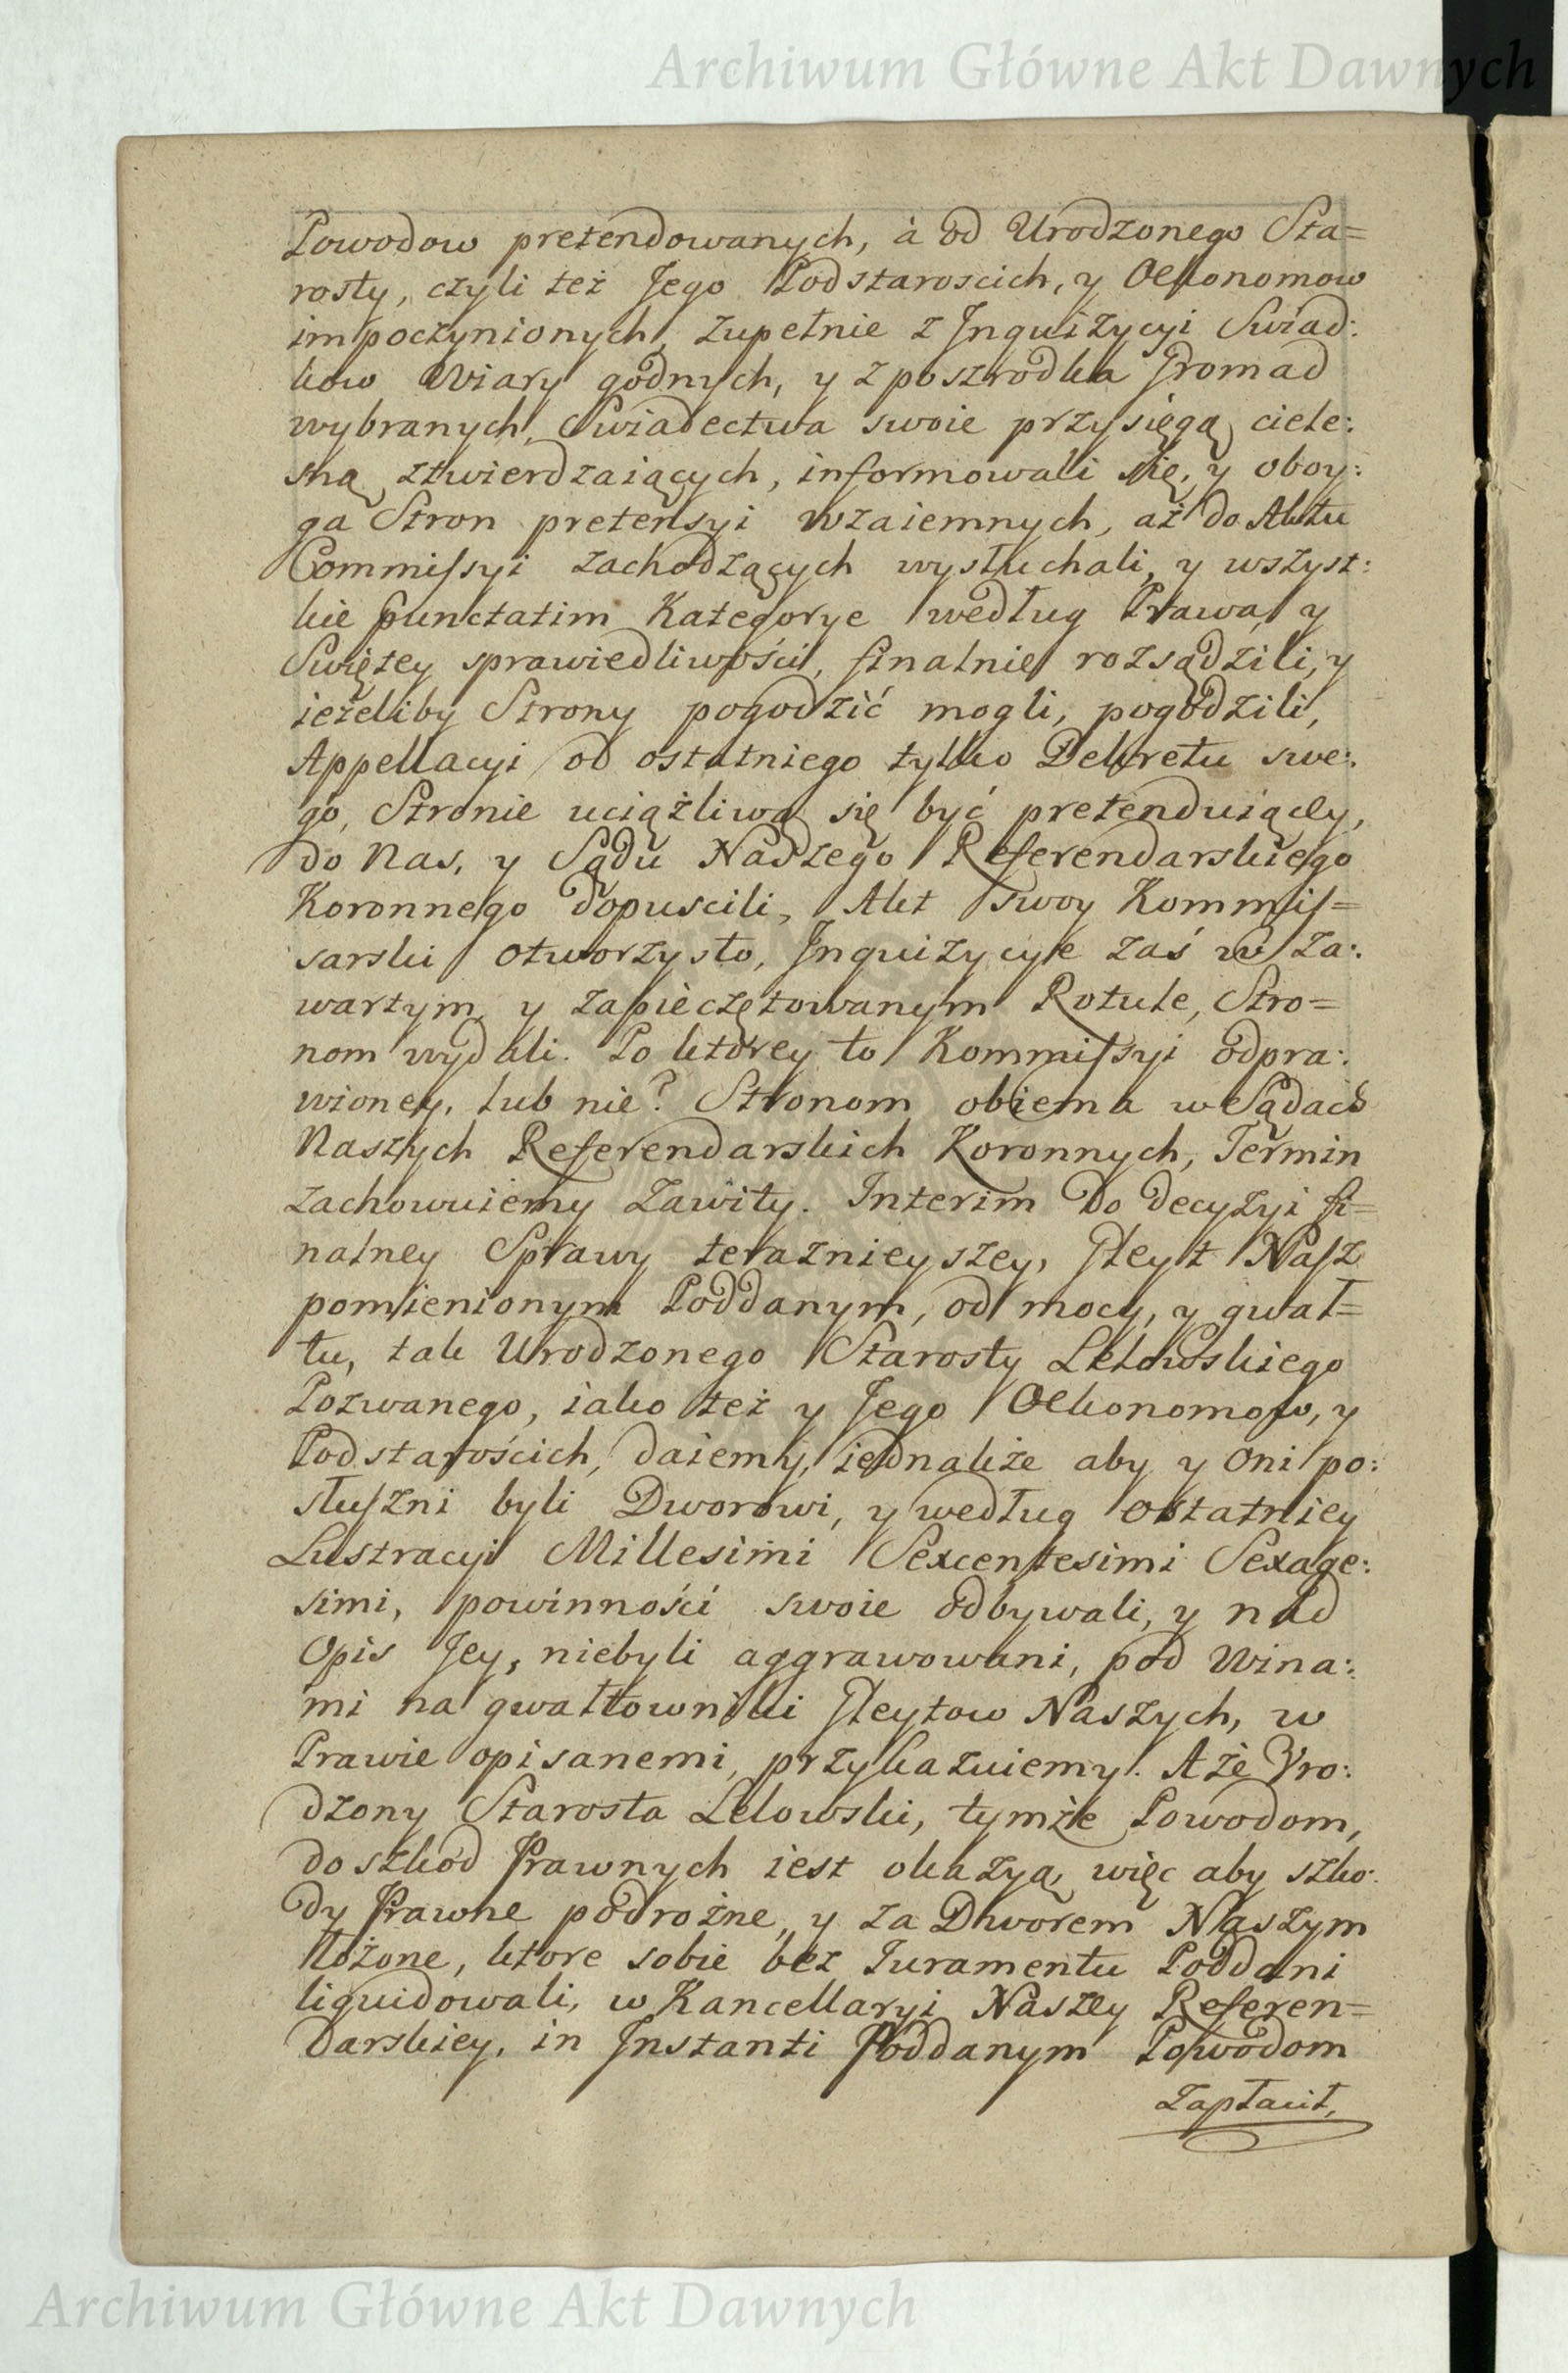 Archiwum Główne Akt Dawnych
Powodow pretendowanych, à od Urodzonego Sta=
rosty, czyli też Jego Podstaroscich, y Oekonomow
im poczynionych, zupełnie z Inquizycyi Swiad:
kow Wiary godnych, y z poszrodka Gromad
wybranych, Swiadectwa swoie przysięgą ciele:
sną ztwierdzaiących, informowali się, y oboy:
ga Stron pretensyi wzaiemnych, aż do Aktu
Commissyi zachodzących wysłuchali, y wszyst:
kie punctatim Kategorye według Prawa, y
Swiętey sprawiedliwości, finalnie rozsądzili, y
ieżeliby Strony pogodzić mogli, pogodzili,
Appellacyi od ostatniego tylko Dekretu swe:
go, Stronie uciążliwą się być pretenduiącey,
do Nas, y Sądu Naszego Referendarskiego
Koronnego dopuscili, Akt swoy Kommis=
sarski otworzysto, Inquizycye zaś w za:
wartym, y zapieczętowanym Rotule, Stro=
nom wydali. Po ktorey to Kommissyi odpra:
wioney, lub nie? Stronom obiema w Sądach
Naszych Referendarskich Koronnych, Termin
zachowuiemy zawity. Interim do decyzyi fi=
nalney Sprawy teraznieyszey, Gleyt Nasz
pomienionym Poddanym, od mocy, y gwał=
tu, tak Urodzonego Starosty Lelowskiego
Pozwanego, iako też y Jego Oekonomow, y
Podstarościch, daiemy, iednakże aby y oni po:
słuszni byli Dworowi, y według ostatniey
Lustracyi Millesimi Sexcentesimi Sexage:
simi, powinności swoie odbywali, y nad
Opis Jey, niebyli aggrawowani, pod Wina:
mi na gwałtowniki Gleytow Naszych, w
Prawie opisanemi, przykazuiemy. A że Vro:
dzony Starosta Lelowski, tymże Powodom,
do szkod Prawnych iest okazyą, więc aby szko:
dy Prawne podrożne, y za Dworem Naszym
łożone, ktore sobie bez Juramentu Poddani
liquidowali, w Kancellaryi Naszey Referen=
darskiey, in Instanti Poddanym Powodom
zapłacił,
Archiwum Główne Akt Dawnych